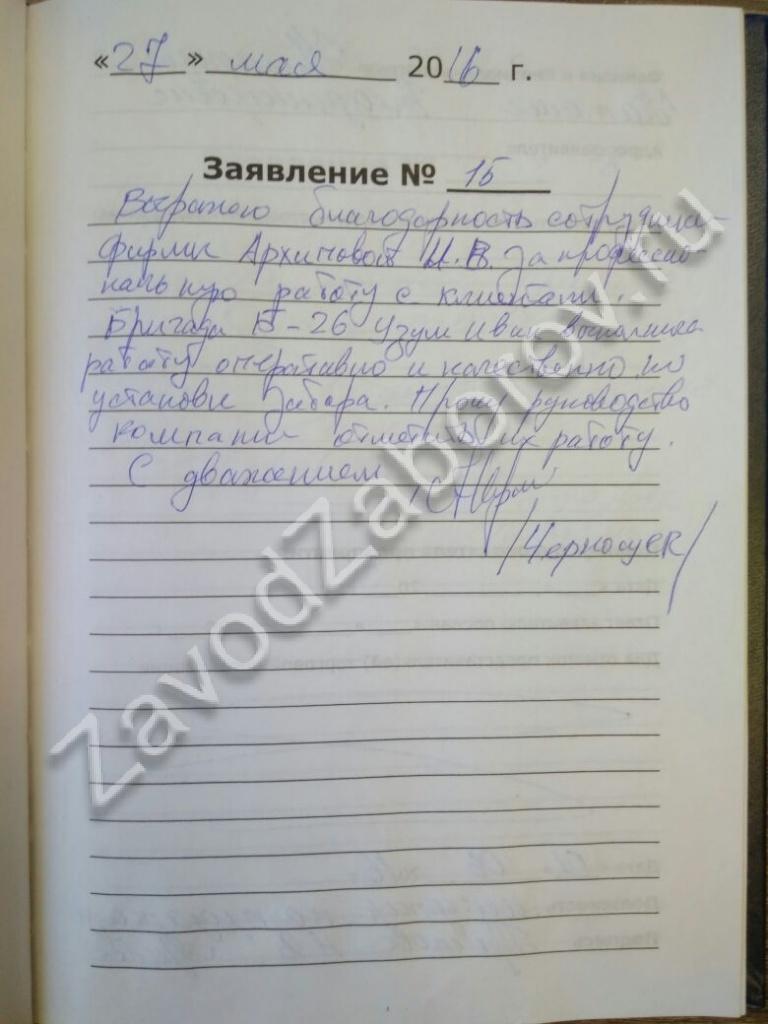 «27» мая 2016 г.
Заявление № 15
Выражаю благодарность сотрудница
фирмы Архиповой И.В. за професcио-
нальную работу с клиентами.
Бригада В-26 Узум Иван выполнила
работу оперативно и качественно по
установки забора. Прошу руководство
компании отметить их работу.
С уважением,
/Черно /
ZavodZaborov.ru